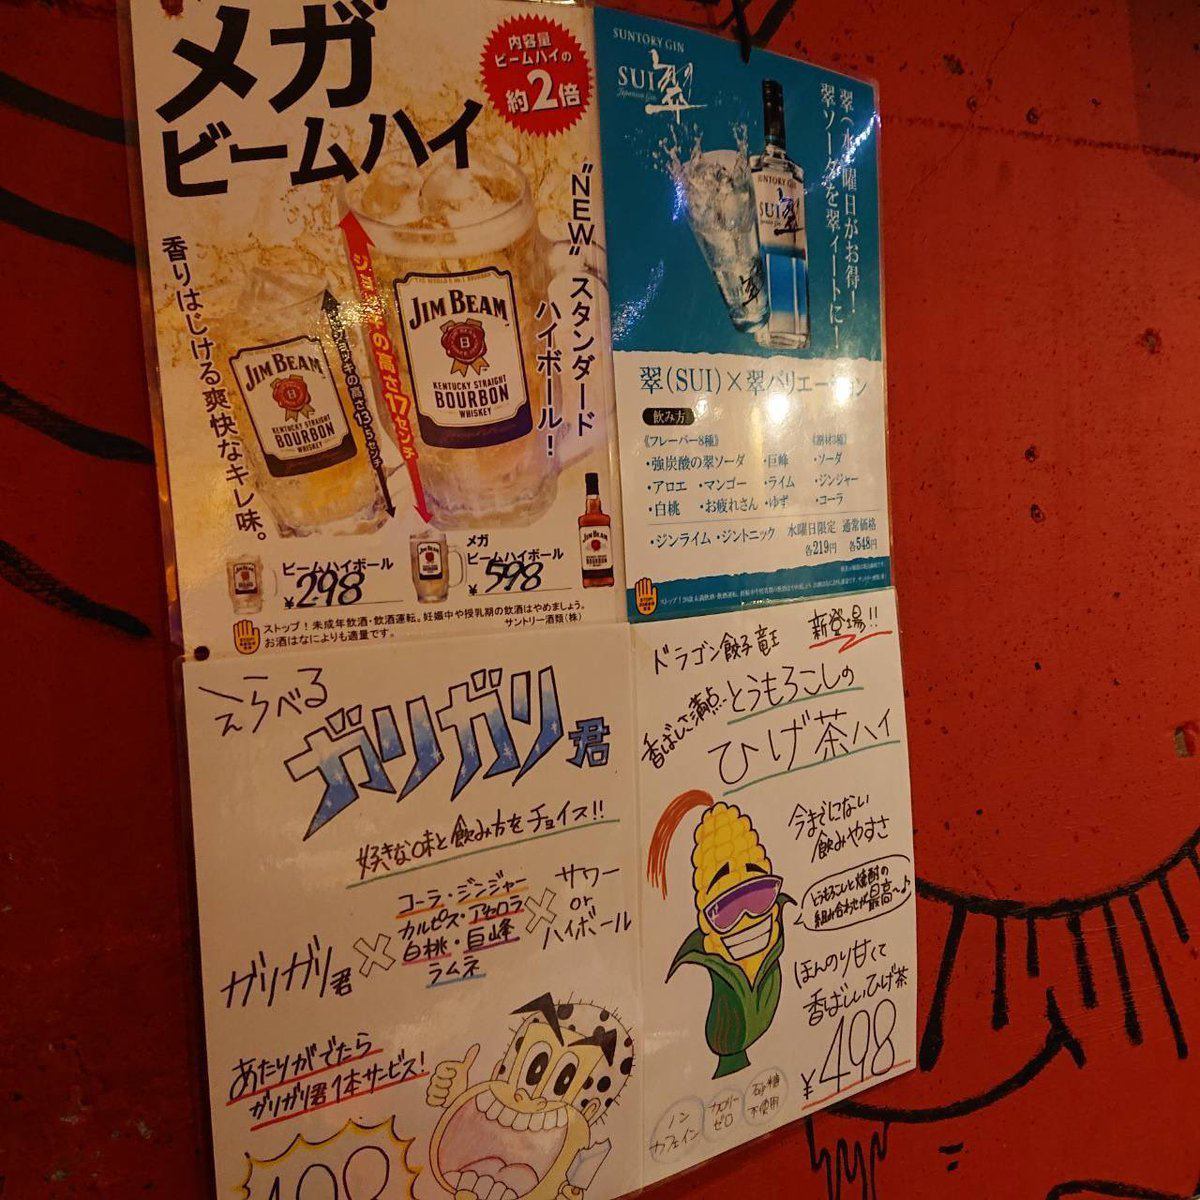 メガ
ビームハイ
内容量
ビームハイの
約2倍
"NEW" スタンダード
ハイボール!
香りはじける爽快なキレ味。
ジョッキの高さ17センチ
ジョッキの高さ13.5センチ
JIM BEAM
KENTUCKY STRAIGHT
BOURBON
WHISKEY
JIM BEAM
KENTUCKY STRAIGHT
BOURBON
WHISKEY
JIM BEAM
BOURBON
ビームハイボール
¥298
メガ
ビームハイボール
¥598
ストップ!未成年飲酒・飲酒運転。妊娠中や授乳期の飲酒はやめましょう。
お酒はなによりも適量です。
サントリー酒類(株)
SUNTORY GIN
SUI 翠
Japanese Gin
翠(水)曜日がお得!
翠ソーダを翠ィートに!
SUNTORY GIN
SUI 翠
翠(SUI)×翠バリエーション
飲み方
《フレーバー8種》
・強炭酸の翠ソーダ ・巨峰
・アロエ ・マンゴー ・ライム
・白桃 ・お疲れさん ・ゆず
《割材3種》
・ソーダ
・ジンジャー
・コーラ
・ジンライム・ジントニック
水曜日限定 通常価格
各219円 各548円
えらべる
ガリガリ君
好きな味と飲み方をチョイス!!
ガリガリ君
×
コーラ・ジンジャー
カルピス・アセロラ
白桃・巨峰
ラムネ
×
サワー
or
ハイボール
あたりがでたら
ガリガリ君1本サービス!
ドラゴン餃子竜王
新登場!!
香ばしさ満点
とうもろこしの
ひげ茶ハイ
今までにない
飲みやすさ
とうもろこしと焼酎の
組み合わせが最高〜♪
ほんのり甘くて
香ばしいひげ茶
¥498
ノン
カフェイン
カロリー
ゼロ
砂糖
不使用